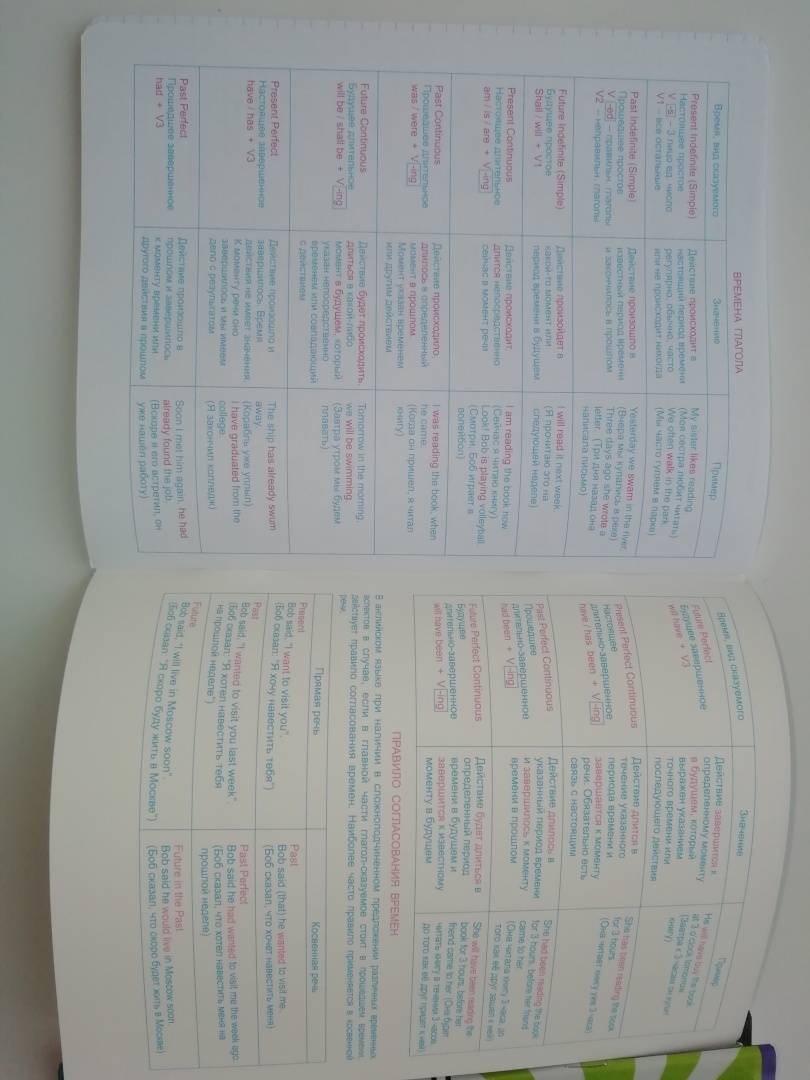 ВРЕМЕНА ГЛАГОЛА
Время, вид сказуемого
Значение
Пример
Present Indefinite (Simple)
Настоящее простое
V -s – 3 лицо ед. число
V1 – все остальные
Действие происходит в
настоящий период времени
регулярно, обычно, часто
или не происходит никогда
My sister likes reading.
(Моя сестра любит читать)
We often walk in the park.
(Мы часто гуляем в парке)
Past Indefinite (Simple)
Прошедшее простое
V -ed – правильн. глаголы
V2 – неправильн. глаголы
Действие произошло в
известный период времени
и закончилось в прошлом
Yesterday we swam in the river.
(Вчера мы купались в реке)
Three days ago she wrote a
letter. (Три дня назад она
написала письмо)
Future Indefinite (Simple)
Будущее простое
Shall / will + V1
Действие произойдет в
какой-то момент или
период времени в будущем
I will read it next week.
(Я прочитаю это на
следующей неделе)
Present Continuous
Настоящее длительное
am / is / are + V -ing
Действие происходит,
длится непосредственно
сейчас в момент речи
I am reading the book now.
(Сейчас я читаю книгу)
Look! Bob is playing volleyball.
(Смотри. Боб играет в
волейбол)
Past Continuous
Прошедшее длительное
was / were + V -ing
Действие происходило,
длилось в определенный
момент в прошлом.
Момент указан временем
или другим действием
I was reading the book, when
he came.
(Когда он пришел, я читал
книгу)
Future Continuous
Будущее длительное
will be / shall be + V -ing
Действие будет происходить,
длиться в какой-либо
момент в будущем, который
указан непосредственно
временем или совпадающий
с действием
Tomorrow in the morning,
we will be swimming.
(Завтра утром мы будем
плавать)
Present Perfect
Настоящее завершенное
have / has + V3
Действие произошло и
завершилось. Время
действия не имеет значения.
К моменту речи оно
завершилось и мы имеем
дело с результатом
The ship has already swum
away.
(Корабль уже уплыл)
I have graduated from the
college.
(Я закончил колледж)
Past Perfect
Прошедшее завершенное
had + V3
Действие произошло в
прошлом и завершилось
к моменту времени или
другого действия в прошлом
Soon I met him again, he had
already found the job.
(Вскоре я его встретил, он
уже нашёл работу)
Время, вид сказуемого
Значение
Пример
Future Perfect
Будущее завершенное
will have + V3
Действие завершится к
определенному моменту
в будущем, который
выражен указанием
точного времени или
последующего действия
He will have buy the book
at 3 o'clock tomorrow.
(Завтра к 3 часам он купит
книгу)
Present Perfect Continuous
настоящее
длительно-завершенное
have / has been + V -ing
Действие длится в
течение указанного
периода времени и
завершается к моменту
речи. Обязательно есть
связь с настоящим
She has been reading the book
for 3 hours.
(Она читает книгу уже 3 часа)
Past Perfect Continuous
Прошедшее
длительно-завершенное
had been + V -ing
Действие длилось в
указанный период времени
и завершилось к моменту
времени в прошлом
She had been reading the book
for 3 hours, before her friend
came to her.
(Она читала книгу 3 часа, до
того как её друг зашел к ней)
Future Perfect Continuous
Будущее
длительно-завершенное
will have been + V -ing
Действие будет длиться в
определенный период
времени в будущем и
завершится к известному
моменту в будущем
She will have been reading the
book for 3 hours, before her
friend came to her (Она будет
читать книгу в течении 3 часов,
до того как её друг придет к ней)
ПРАВИЛО СОГЛАСОВАНИЯ ВРЕМЕН
В английском языке при наличии в сложноподчиненном предложении различных временных
аспектов в случае, если в главной части глагол-сказуемое стоит в прошедшем времени,
действует правило согласования времен. Наиболее часто правило применяется в косвенной
речи.
Прямая речь
Косвенная речь
Present
Bob said, "I want to visit you".
(Боб сказал: "Я хочу навестить тебя")
Past
Bob said (that) he wanted to visit me.
(Боб сказал, что хочет навестить меня)
Past
Bob said, "I wanted to visit you last week".
(Боб сказал: "Я хотел навестить тебя
на прошлой неделе")
Past Perfect
Bob said he had wanted to visit me the week ago.
(Боб сказал, что хотел навестить меня на
прошлой неделе)
Future
Bob said, "I will live in Moscow soon"
(Боб сказал: "Я скоро буду жить в Москве")
Future in the Past
Bob said he would live in Moscow soon.
(Боб сказал, что скоро будет жить в Москве)